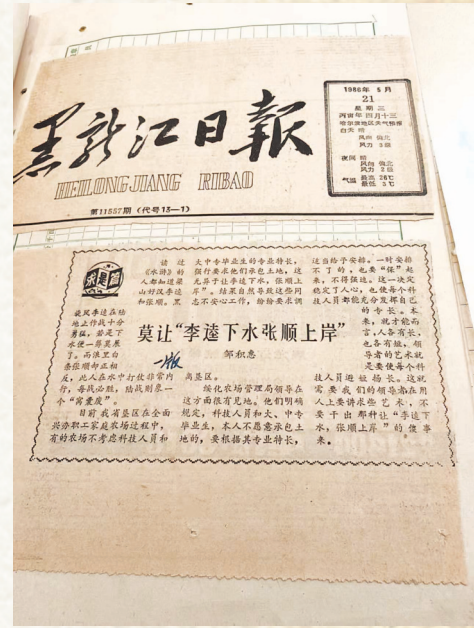 黑龍江日報
HEILONGJIANG RIBAO
第11557期（代号13—1）
1986年 5月
21
星期三
丙寅年四月十三
哈尔滨地区天气预报
白天 晴
风向 偏北
风力 3级
夜间 晴
风向 偏北
风力 2级
气温 最高 26℃
最低 3℃
求是篇
莫让“李逵下水张顺上岸”
邹积惠
一版
读过
《水浒》的
人都知道梁
山好汉李逵
和张顺。黑
旋风李逵在陆
地上作战十分
勇猛，若是下
水便一筹莫展
了。而浪里白
条张顺却正相
反，此人在水中打仗非常内
行，每战必胜，陆战则是一
个“窝囊废”。
目前我省垦区在全面
兴办职工家庭农场过程中，
有的农场不考虑科技人员和
大中专毕业生的专业特长，
强行要求他们承包土地，这
无异于让李逵下水，张顺上
岸”。结果自然导致这些同
志不安心工作，纷纷要求调
离垦区。
绥化农场管理局领导在
这方面很有见地。他们明确
规定，科技人员和大、中专
毕业生，本人不愿意承包土
地的，要根据其专业特长，
适当给予安排。一时安排
不了的，也要“保”起
来，不得强迫。这一决定
稳定了人心，也使每个科
技人员都能充分发挥自己
的专长。本
来，就才能而
言，人各有长，
也各有短。领
导者的艺术就
是要使每个科
技人员避短扬长。这就
需要我们的领导者在用
人上要讲求些艺术，不
要干出那种让“李逵下
水，张顺上岸”的傻事
来。